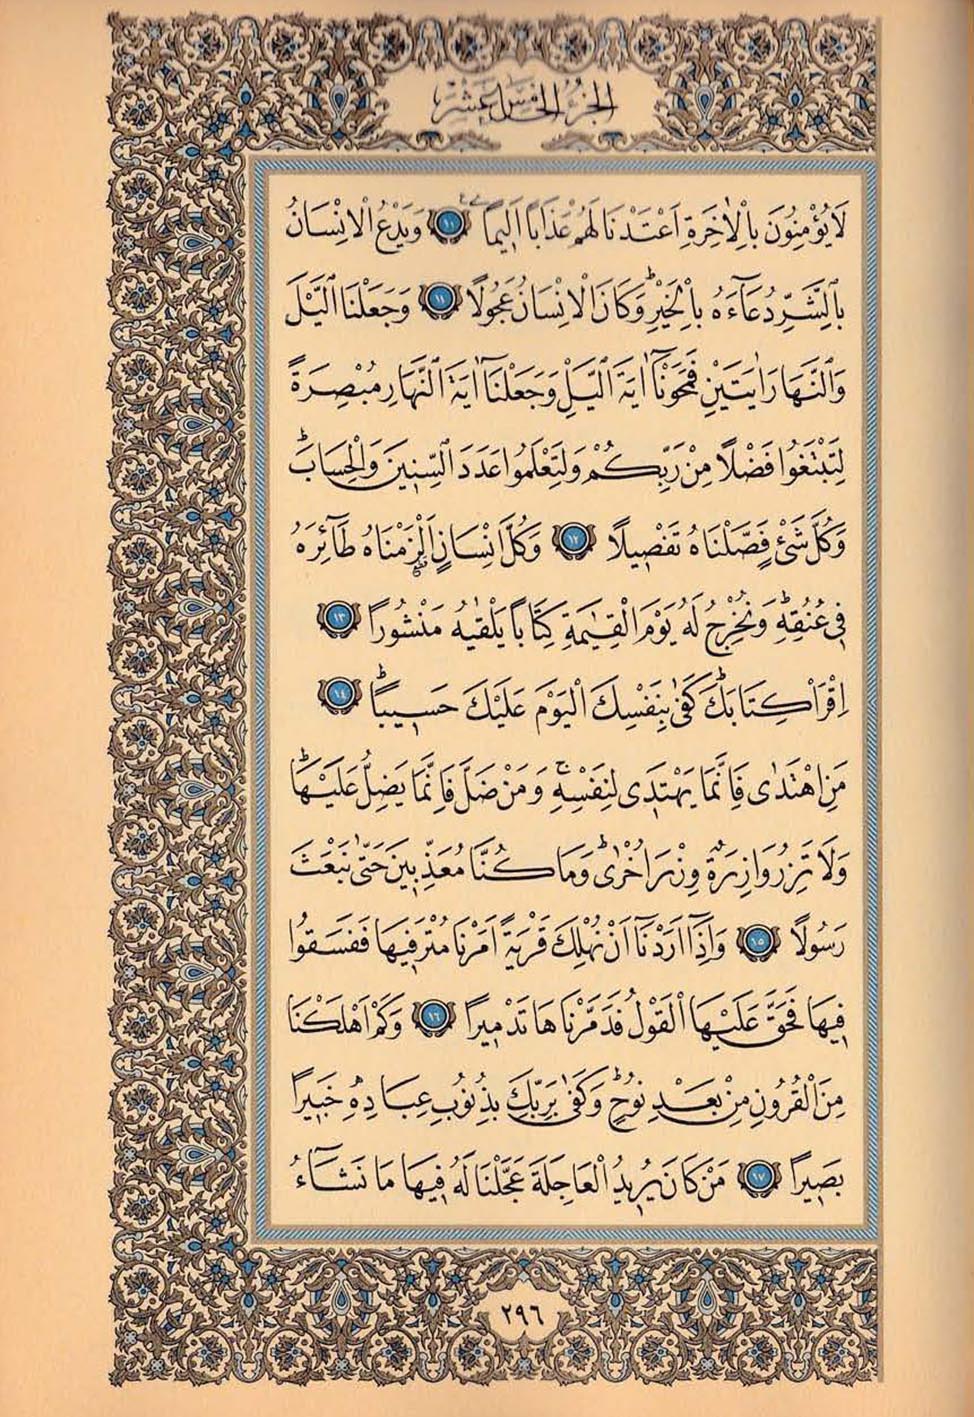 الجزء الخامس عشر
لَا يُؤْمِنُونَ بِالْاٰخِرَةِ اَعْتَدْنَا لَهُمْ عَذَابًا اَل۪يمًا ۟ ﴿١٠﴾ وَيَدْعُ الْاِنْسَانُ
بِالشَّرِّ دُعَٓاءَهُ بِالْخَيْرِۜ وَكَانَ الْاِنْسَانُ عَجُولًا ﴿١١﴾ وَجَعَلْنَا الَّيْلَ
وَالنَّهَارَ اٰيَتَيْنِ فَمَحَوْنَٓا اٰيَةَ الَّيْلِ وَجَعَلْنَٓا اٰيَةَ النَّهَارِ مُبْصِرَةً
لِتَبْتَغُوا فَضْلًا مِنْ رَبِّكُمْ وَلِتَعْلَمُوا عَدَدَ السِّن۪ينَ وَالْحِسَابَۜ
وَكُلَّ شَيْءٍ فَصَّلْنَاهُ تَفْص۪يلًا ﴿١٢﴾ وَكُلَّ اِنْسَانٍ اَلْزَمْنَاهُ طَٓائِرَهُ
ف۪ي عُنُقِه۪ۜ وَنُخْرِجُ لَهُ يَوْمَ الْقِيٰمَةِ كِتَابًا يَلْقٰيهُ مَنْشُورًا ﴿١٣﴾
اِقْرَأْ كِتَابَكَۜ كَفٰى بِنَفْسِكَ الْيَوْمَ عَلَيْكَ حَس۪يبًاۜ ﴿١٤﴾
مَنِ اهْتَدٰى فَاِنَّمَا يَهْتَد۪ي لِنَفْسِه۪ۚ وَمَنْ ضَلَّ فَاِنَّمَا يَضِلُّ عَلَيْهَاۜ
وَلَا تَزِرُ وَازِرَةٌ وِزْرَ اُخْرٰىۜ وَمَا كُنَّا مُعَذِّب۪ينَ حَتّٰى نَبْعَثَ
رَسُولًا ﴿١٥﴾ وَاِذَٓا اَرَدْنَٓا اَنْ نُهْلِكَ قَرْيَةً اَمَرْنَا مُتْرَف۪يهَا فَفَسَقُوا
ف۪يهَا فَحَقَّ عَلَيْهَا الْقَوْلُ فَدَمَّرْنَاهَا تَدْم۪يرًا ﴿١٦﴾ وَكَمْ اَهْلَكْنَا
مِنَ الْقُرُونِ مِنْ بَعْدِ نُوحٍۜ وَكَفٰى بِرَبِّكَ بِذُنُوبِ عِبَادِه۪ خَب۪يرًا
بَص۪يرًا ﴿١٧﴾ مَنْ كَانَ يُر۪يدُ الْعَاجِلَةَ عَجَّلْنَا لَهُ ف۪يهَا مَا نَشَٓاءُ
٢٩٦